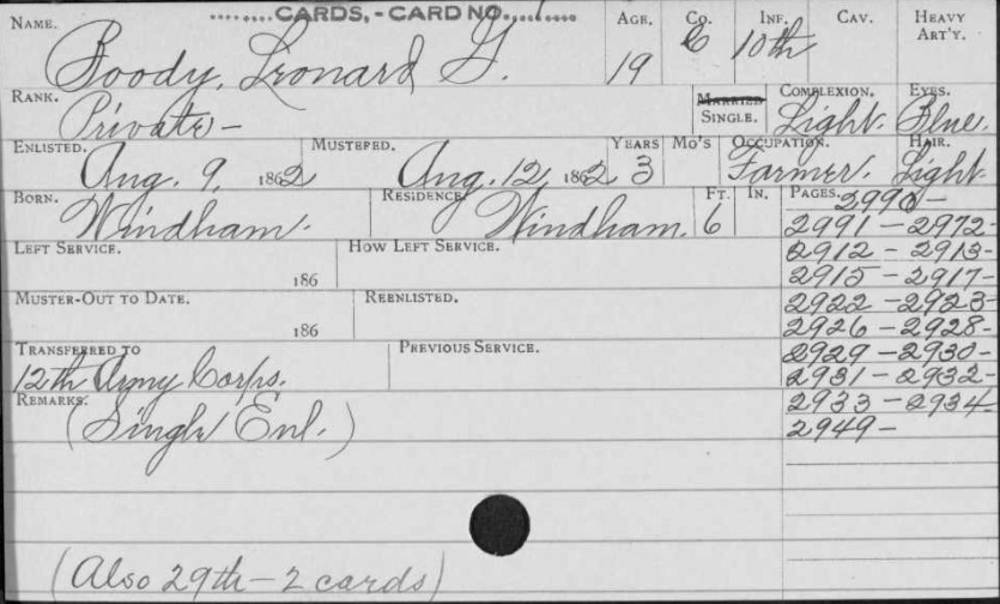 ........CARDS, - CARD NO....1....
NAME. Boody, Leonard G.
AGE. 19
CO. C
INF. 10th
CAV.
HEAVY ART'Y.
RANK. Private -
MARRIED
SINGLE.
COMPLEXION. Light.
EYES. Blue.
ENLISTED. Aug. 9, 1862
MUSTERED. Aug. 12, 1862
YEARS 3
MO'S
OCCUPATION. Farmer.
HAIR. Light
BORN. Windham.
RESIDENCE Windham.
FT. 6
IN.
PAGES. 2990 -
2991 - 2972 -
2912 - 2913 -
2915 - 2917 -
2922 - 2923 -
2926 - 2928 -
2929 - 2930 -
2931 - 2932 -
2933 - 2934 -
2949 -
LEFT SERVICE. 186
HOW LEFT SERVICE.
MUSTER-OUT TO DATE. 186
REENLISTED.
TRANSFERRED TO 12th Army Corps.
PREVIOUS SERVICE.
REMARKS. (Single Enl.)
(Also 29th - 2 cards)